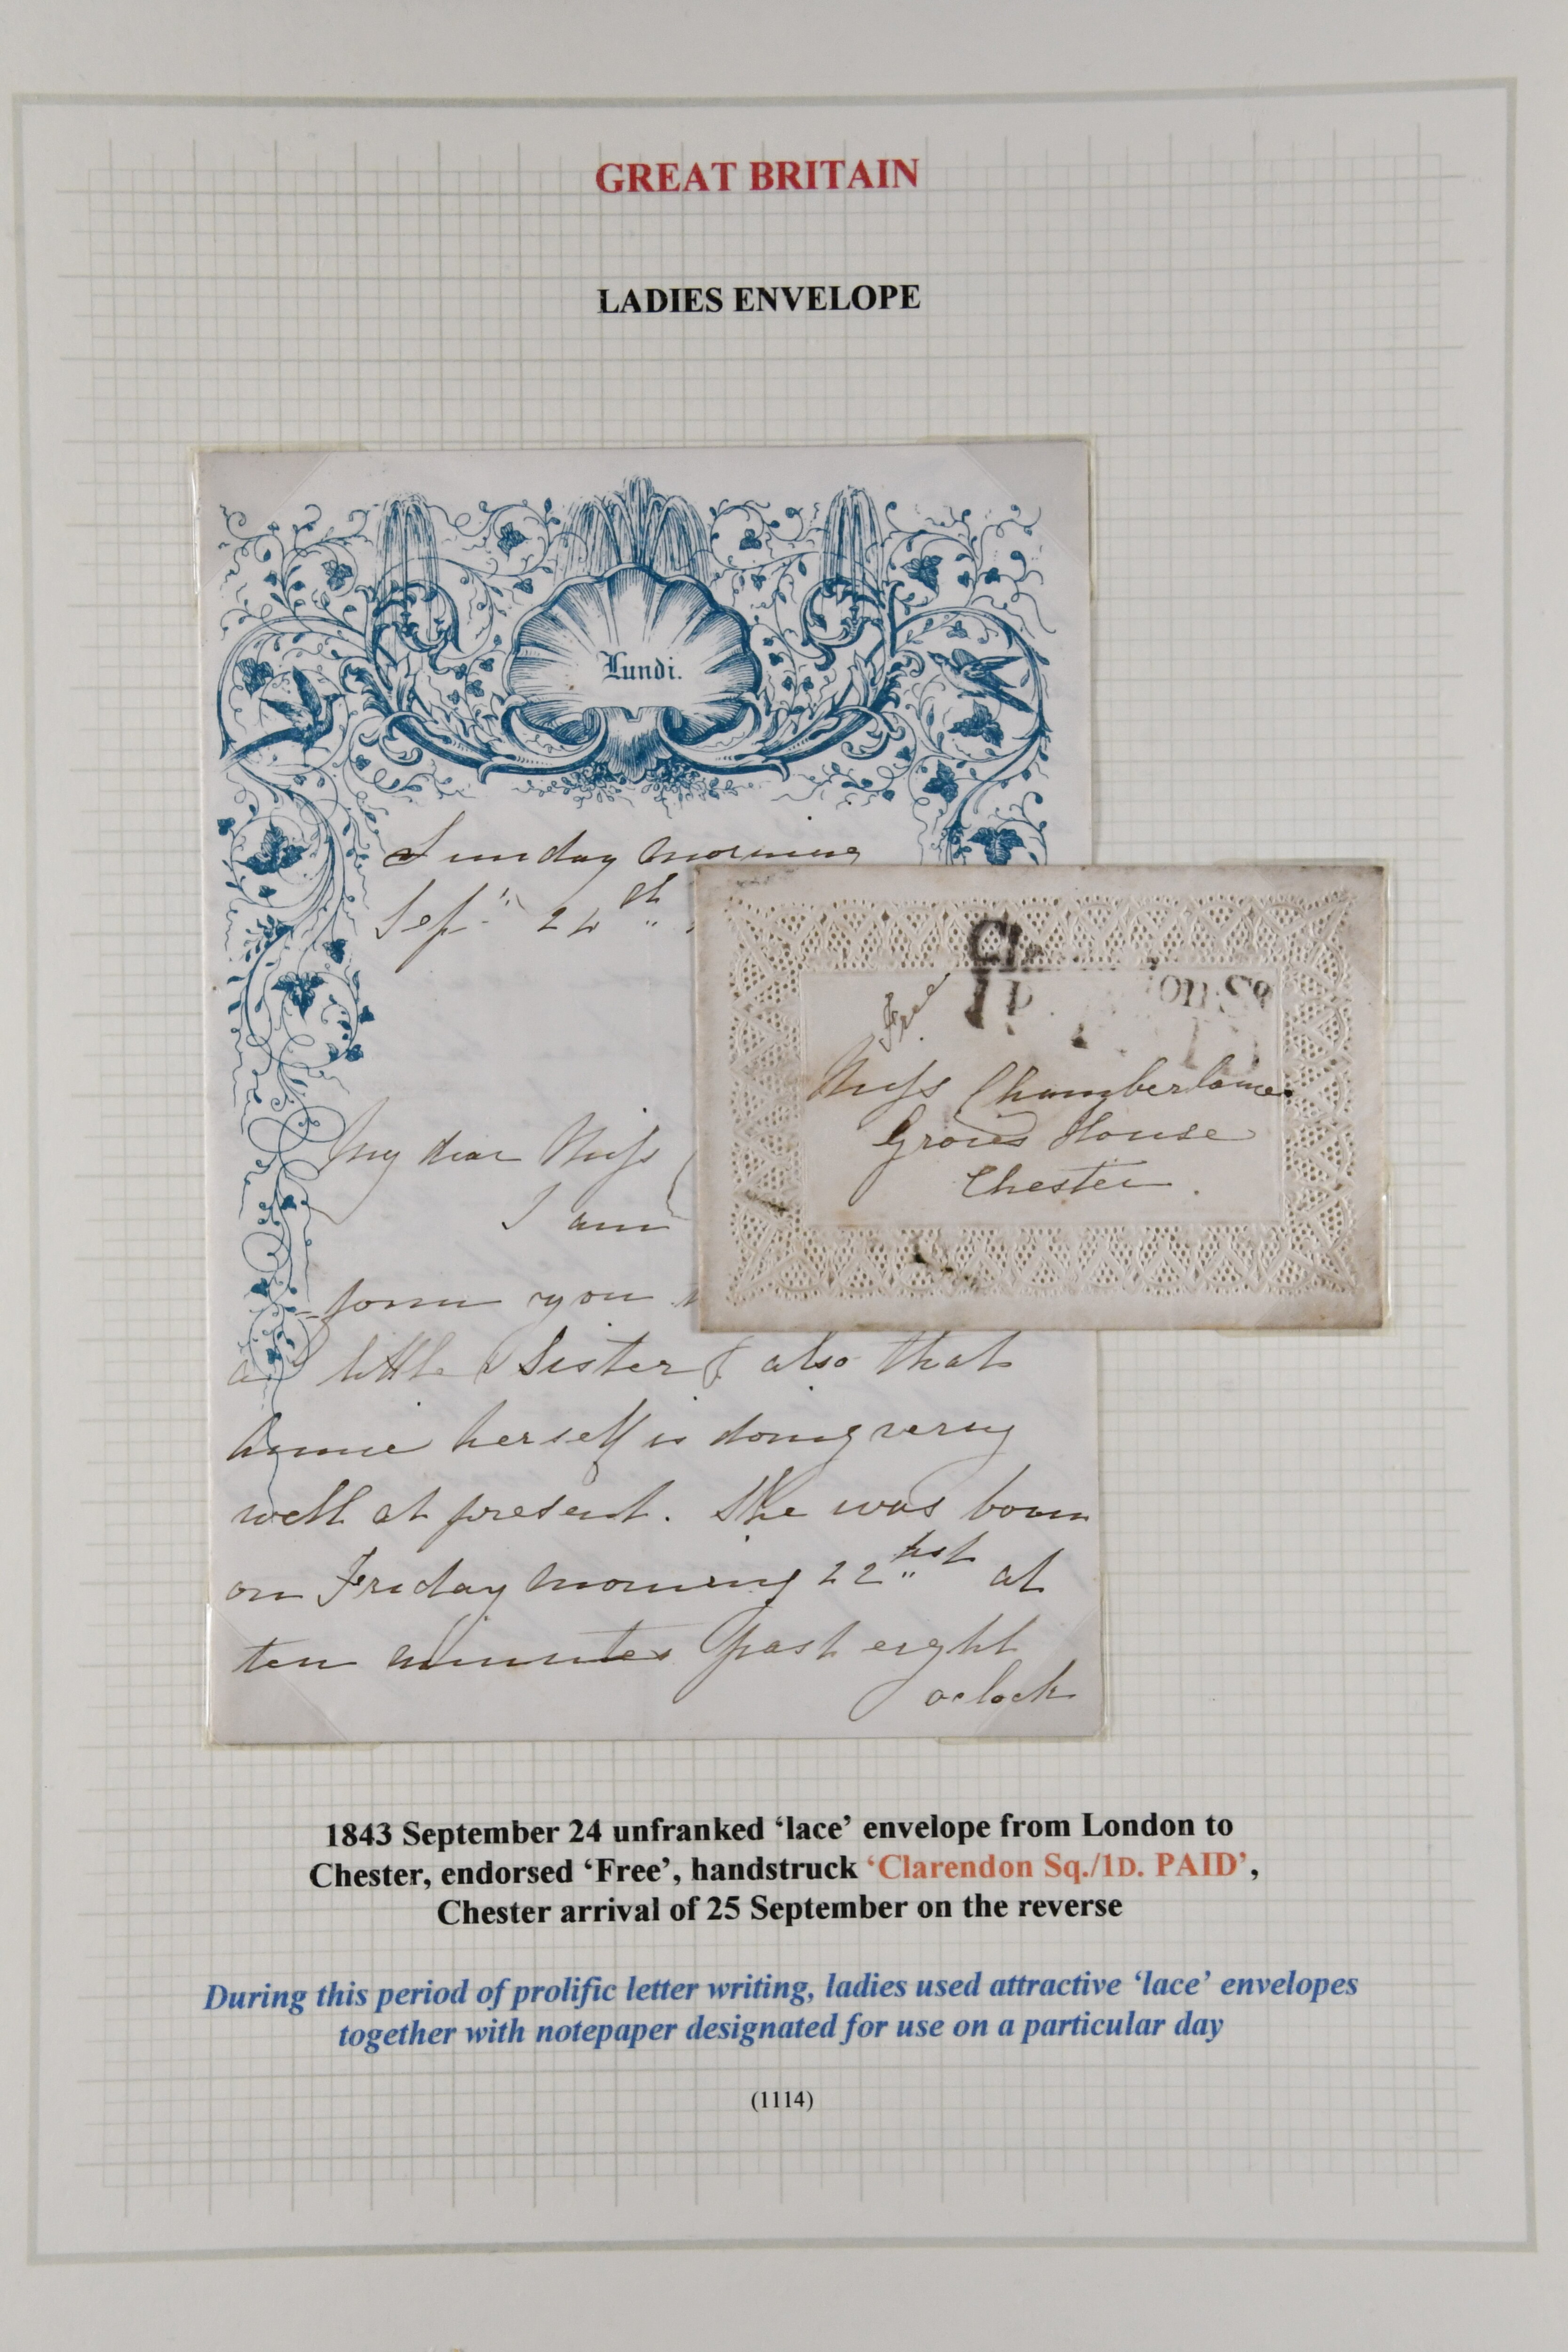 GREAT BRITAIN
LADIES ENVELOPE
Lundi.
Sunday morning
Sep 24th
My dear Miss
I am
=form you
a little Sister & also that
Annie herself is doing very
well at present. She was born
on Friday morning 22 inst at
ten minutes past eight
oclock
Free
Miss Chamberlaine
Groves House
Chester.
1843 September 24 unfranked ‘lace’ envelope from London to
Chester, endorsed ‘Free’, handstruck ‘Clarendon Sq./1D. PAID’,
Chester arrival of 25 September on the reverse
During this period of prolific letter writing, ladies used attractive ‘lace’ envelopes
together with notepaper designated for use on a particular day
(1114)